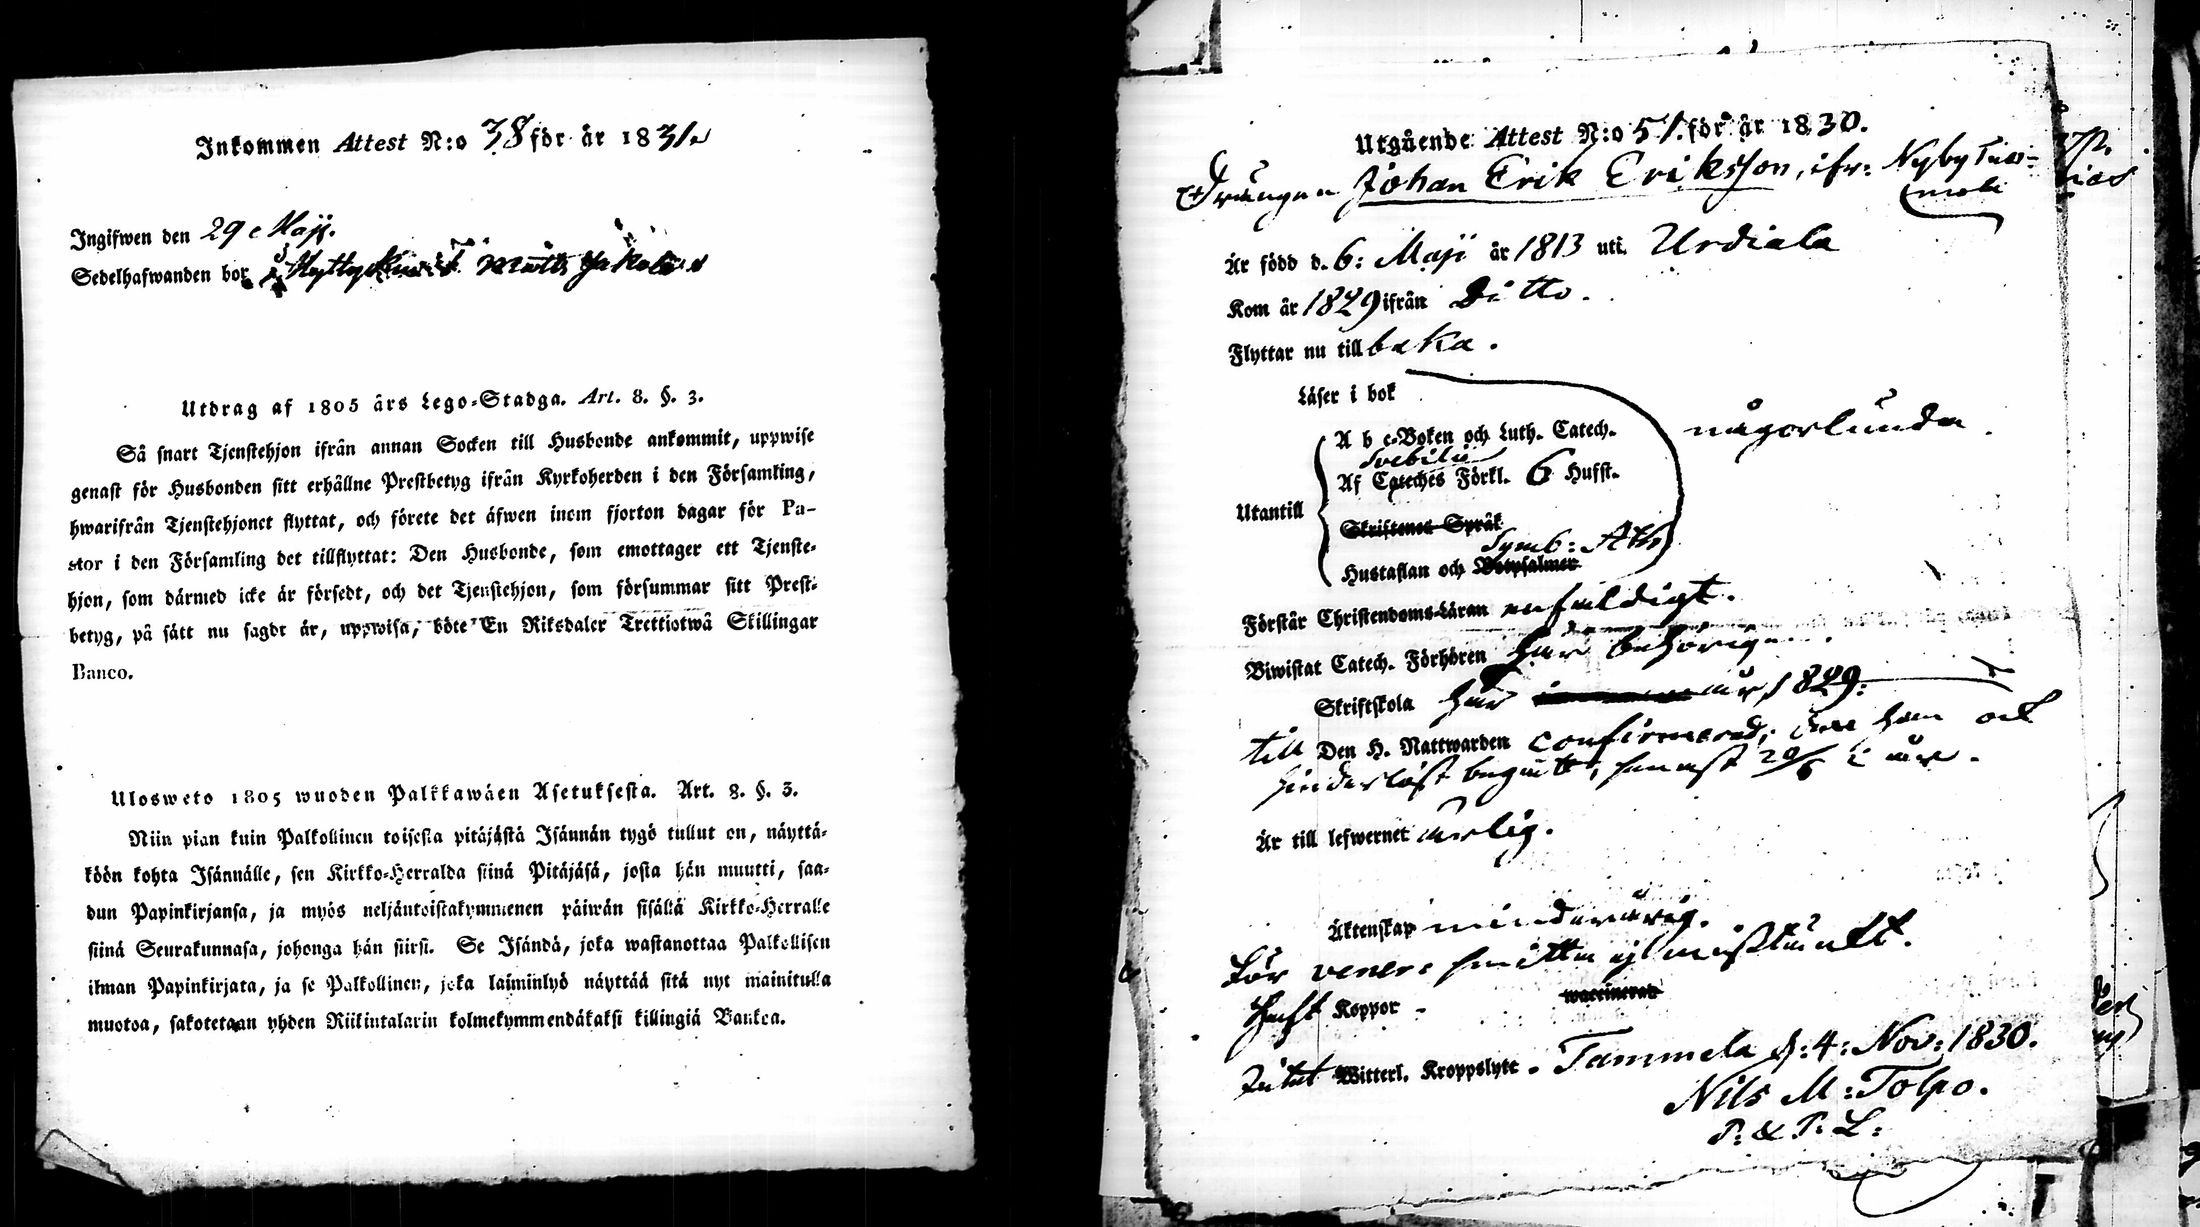 Inkommen Attest N:o 38 för år 1831.
Ingifwen den 29 e Maji.
Sedelhafwanden bor
Utdrag af 1805 års Lego-Stadga. Art. 8. §. 3.
Så snart Tjenstehjon ifrån annan Socken till Husbonde ankommit, uppwise
genast för Husbonden sitt erhållne Prestbetyg ifrån Kyrkoherden i den Församling,
hwarifrån Tjenstehjonet flyttat, och förete det äfwen inom fjorton dagar för Pa-
stor i den Församling det tillflyttat: Den Husbonde, som emottager ett Tjenste-
hjon, som därmed icke är försedt, och det Tjenstehjon, som försummar sitt Prest-
betyg, på sätt nu sagdt är, uppwisa, böte En Riksdaler Trettiotwå Skillingar
Banco.
Ulosweto 1805 wuoden Palkkawäen Asetuksesta. Art. 8. §. 3.
Niin pian kuin Palkollinen toisesta pitäjästä Isännän tygö tullut on, näyttä-
köön kohta Isännälle, sen Kirkko-Herralda siinä Pitäjäsä, josta hän muutti, saa-
dun Papinkirjansa, ja myös neljäntoistakymmenen päiwän sisällä Kirkko-Herralle
siinä Seurakunnasa, johonga hän siirsi. Se Isändä, joka wastanottaa Palkollisen
ilman Papinkirjata, ja se Palkollinen, joka laiminlyö näyttää sitä nyt mainitulla
muotoa, sakotetaan yhden Riikintalarin kolmekymmendäkaksi killingiä Bankoa.
Utgående Attest N:o 51. för år 1830.
Drängen Johan Erik Eriksson, ifr: Nyby
Är född d. 6: Maji år 1813 uti. Urdiala
Kom år 1829 ifrån Ditto.
Flyttar nu till baka.
Läser i bok
någorlunda.
A b c-Boken och Luth. Catech.
Svebilii
Af Cateches Förkl. 6 Hufst.
Utantill
Skriftenes Språk
Symb: Ath
Hustaflan och Botpsalmer
Förstår Christendoms-Läran enfaldigt.
Biwistat Catech. Förhören här behörigen.
Skriftskola här år 1829:
till Den H. Nattwarden confirmerad, den han ock
hinderlöst begått, senast 20/6 i år.
Är till lefwernet ärlig.
Äktenskap minderårig.
För venere smitta ej misstänkt.
Haft Koppor -
waccinerad
Intet Witterl. Kroppslyte. Tammela d: 4: Nov: 1830.
Nils M: Tolpo.
P: & P: L: